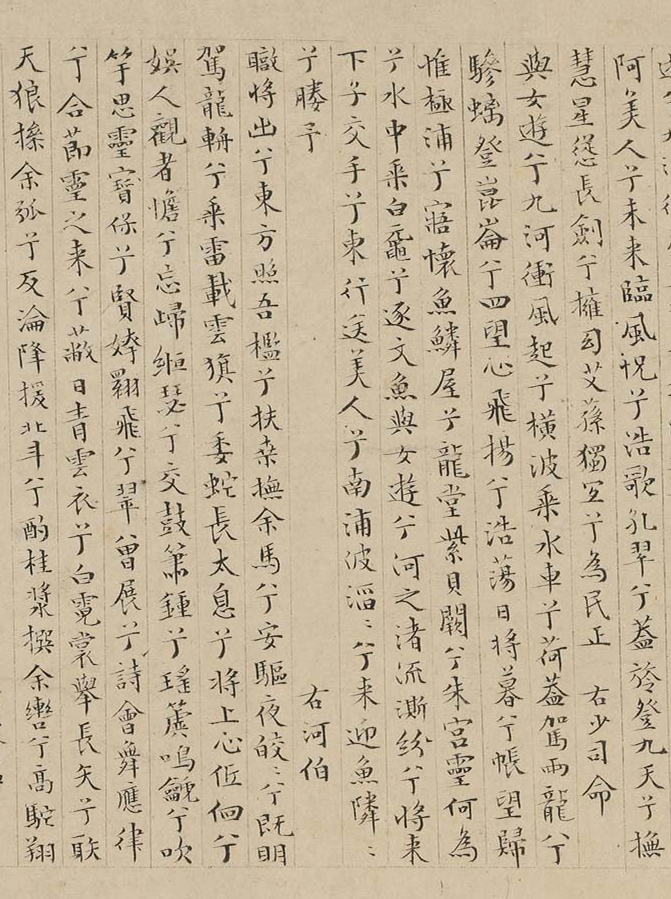 阿美人兮未来臨風怳兮浩歌孔翠兮蓋旍登九天兮撫
慧星慫長劍兮擁幼艾蓀獨宜兮為民正　右少司命
與女遊兮九河衝風起兮橫波乘水車兮荷蓋駕兩龍兮
驂螭登崑崙兮四望心飛揚兮浩蕩日將暮兮悵望歸
惟極浦兮寤懷魚鱗屋兮龍堂紫貝闕兮朱宮靈何為
兮水中乘白黿兮逐文魚與女遊兮河之渚流澌紛兮將来
下子交手兮東行送美人兮南浦波滔〻兮来迎魚隣〻
兮媵予　右河伯
暾將出兮東方照吾檻兮扶桑撫余馬兮安驅夜皎〻兮既明
駕龍輈兮乘雷載雲旗兮委蛇長太息兮將上心低佪兮
娛人觀者憺兮忘歸緪瑟兮交鼓簫鍾兮瑤簴鳴龥兮吹
竽思靈寶保兮賢姱翾飛兮翠曾展兮詩會舞應律
兮合節靈之来兮蔽日青雲衣兮白霓裳舉長矢兮
天狼操余弧兮反淪降援北斗兮酌桂漿撰余轡兮高駝翔